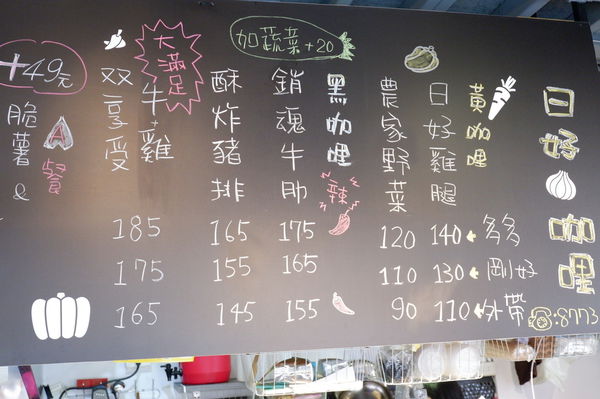 日好咖哩
☎:8773
黃咖哩
日好雞腿
農家野菜
黑咖哩
辣
銷魂牛肋
酥炸豬排
加蔬菜+20
大滿足
牛+雞
雙享受
+49元
A餐
脆薯&
185 165 175 120 140 多多
175 155 165 110 130 剛好
165 145 155 90 110 外帶